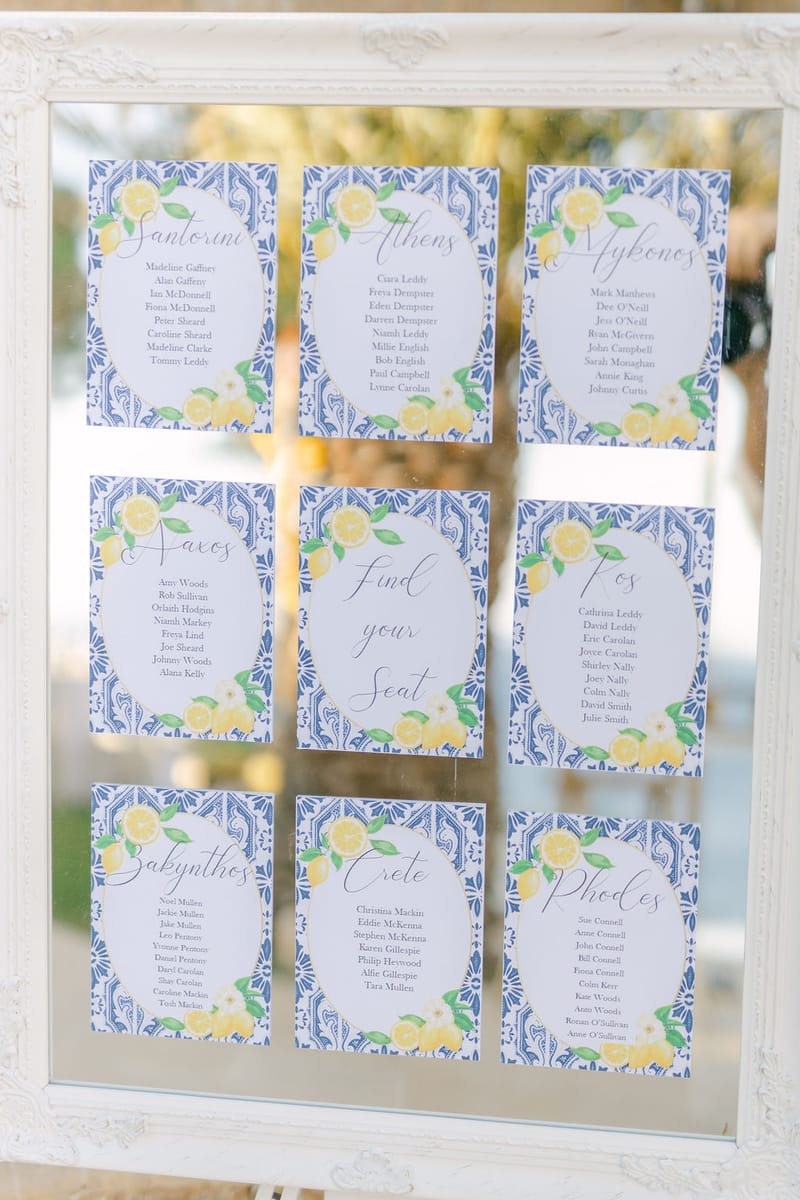 Santorini
Madeline Gaffney
Alan Gaffeny
Ian McDonnell
Fiona McDonnell
Peter Sheard
Caroline Sheard
Madeline Clarke
Tommy Leddy
Athens
Ciara Leddy
Freya Dempster
Eden Dempster
Darren Dempster
Niamh Leddy
Millie English
Bob English
Paul Campbell
Lynne Carolan
Mykonos
Mark Matthews
Dee O'Neill
Jess O'Neill
Ryan McGivern
John Campbell
Sarah Monaghan
Annie King
Johnny Curtis
Naxos
Amy Woods
Rob Sullivan
Orlaith Hodgins
Niamh Markey
Freya Lind
Joe Sheard
Johnny Woods
Alana Kelly
Find
your
Seat
Kos
Cathrina Leddy
David Leddy
Eric Carolan
Joyce Carolan
Shirley Nally
Joey Nally
Colm Nally
David Smith
Julie Smith
Zakynthos
Noel Mullen
Jackie Mullen
Jake Mullen
Leo Pentony
Yvonne Pentony
Daniel Pentony
Daryl Carolan
Shay Carolan
Caroline Mackin
Tosh Mackin
Crete
Christina Mackin
Eddie McKenna
Stephen McKenna
Karen Gillespie
Philip Heywood
Alfie Gillespie
Tara Mullen
Rhodes
Sue Connell
Anne Connell
John Connell
Bill Connell
Fiona Connell
Colm Kerr
Kate Woods
Anto Woods
Ronan O'Sullivan
Anne O'Sullivan